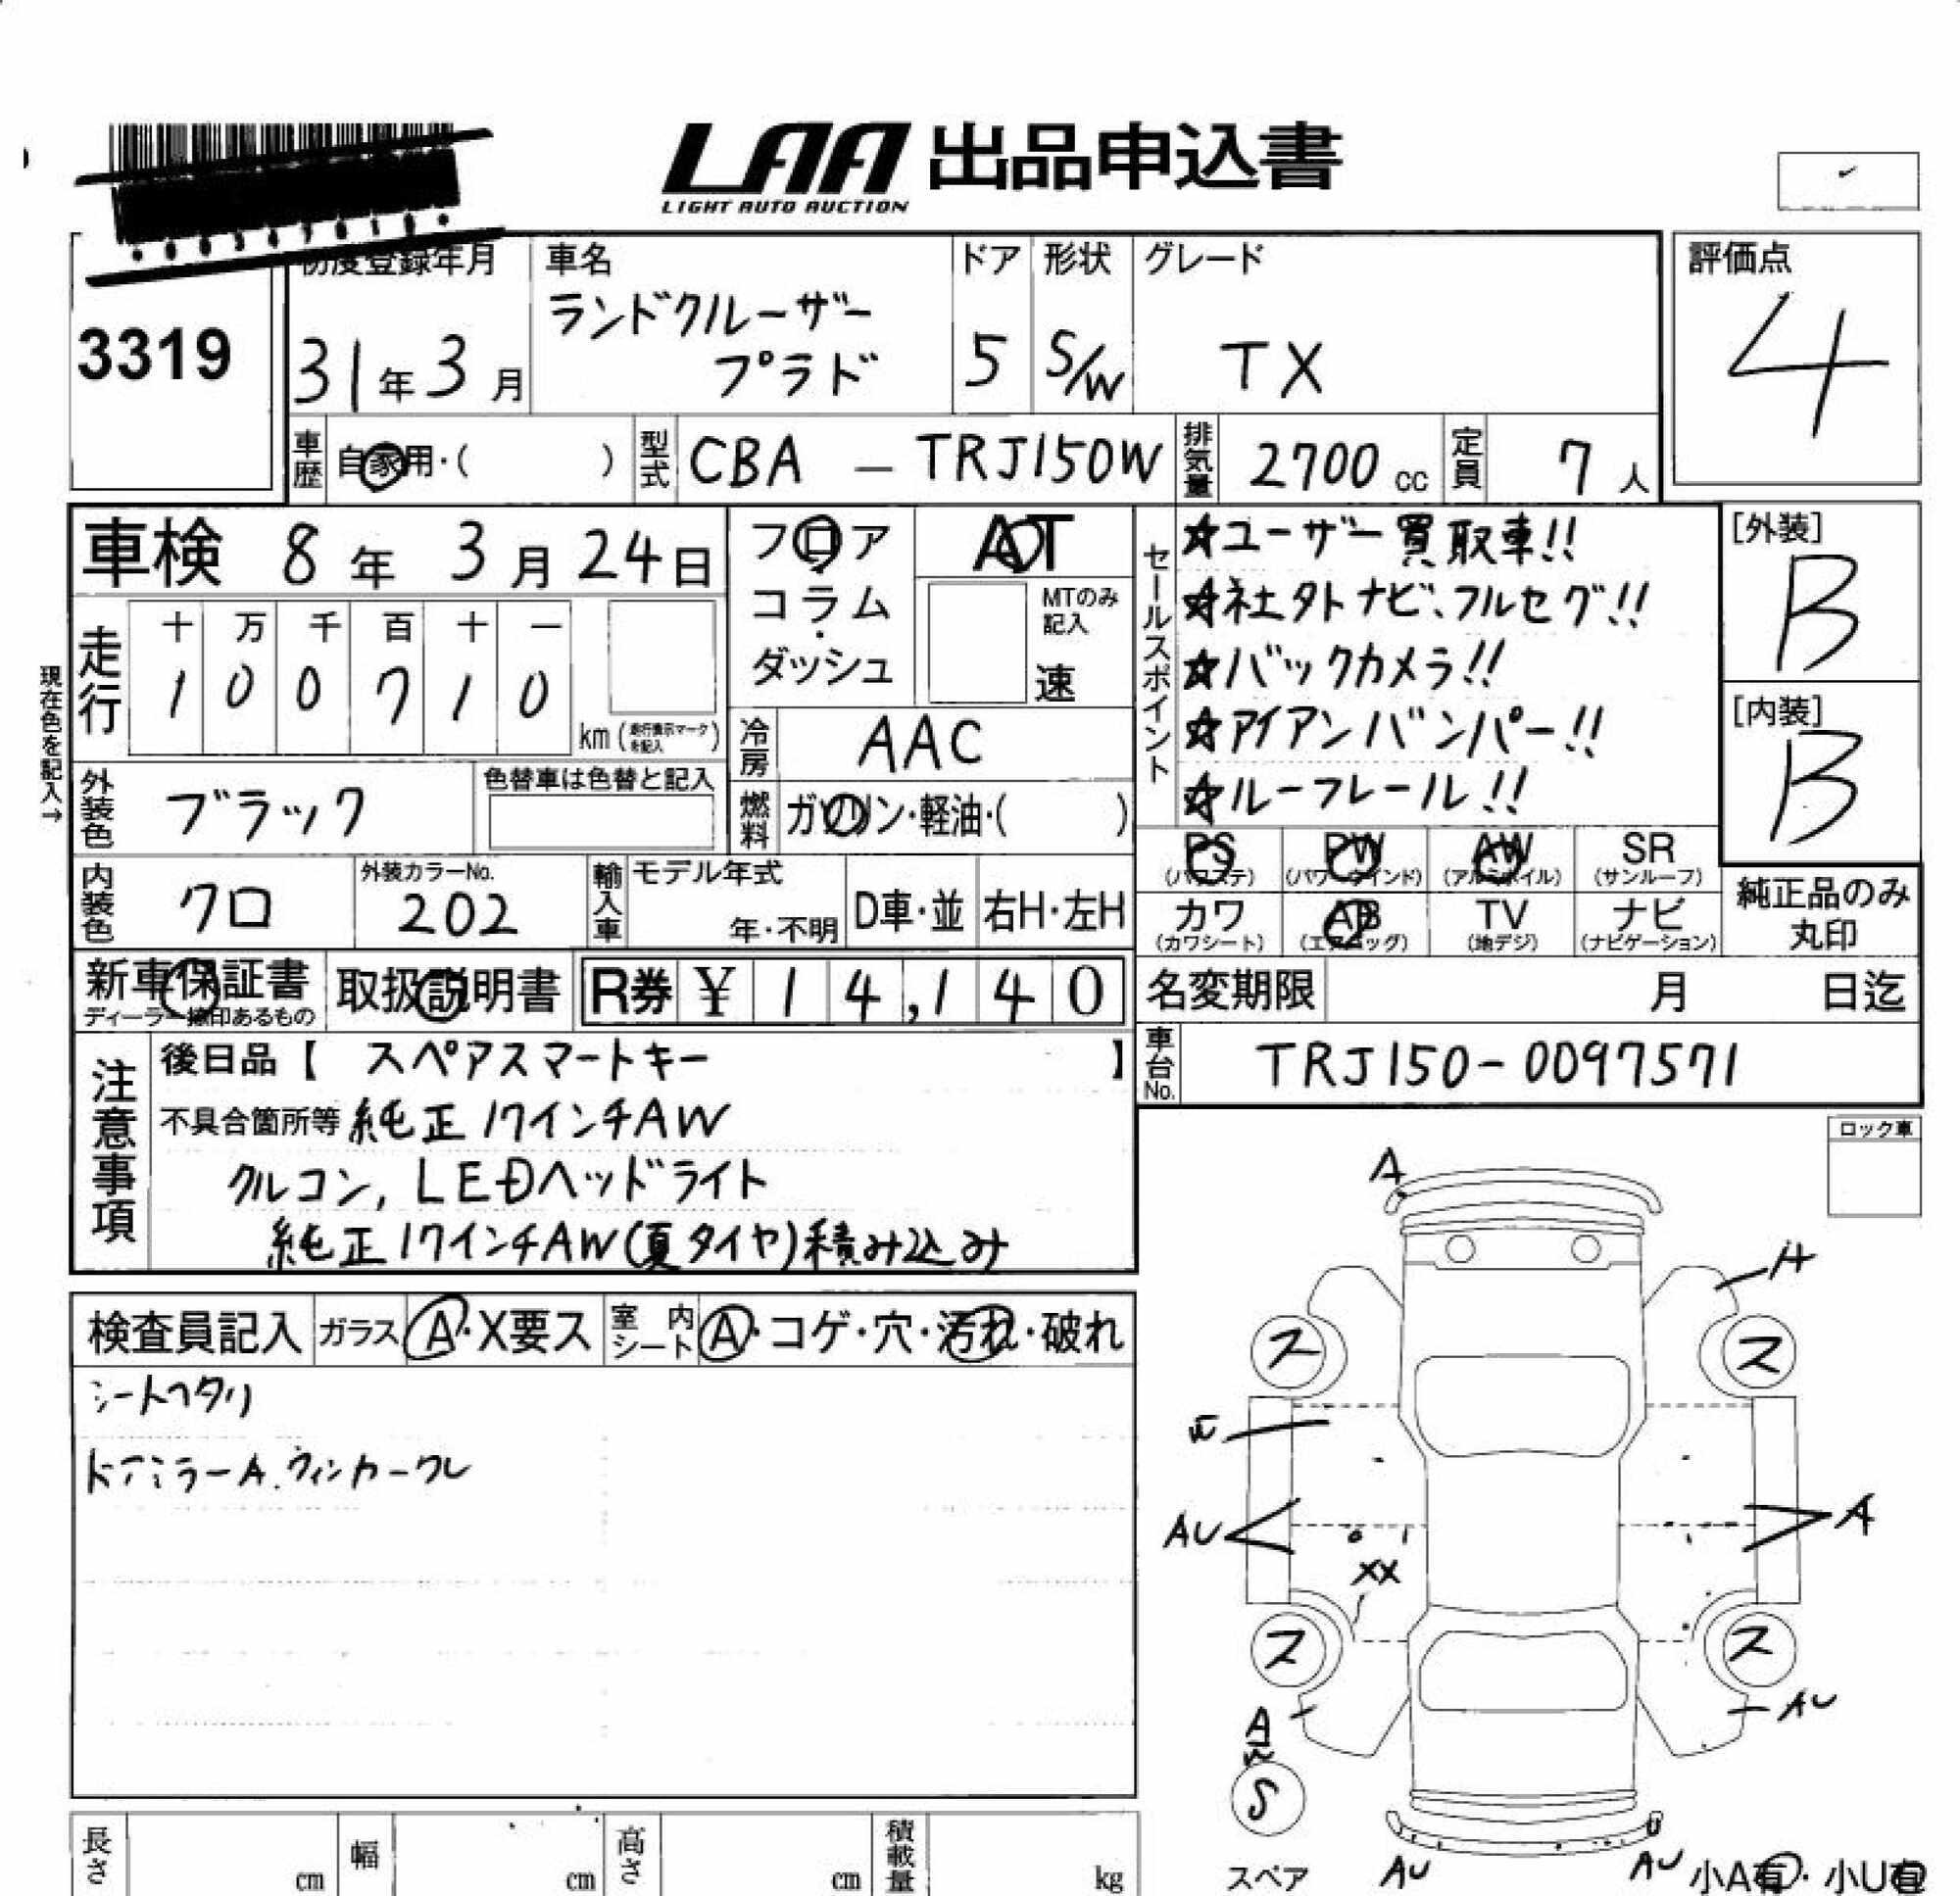 LAA 出品申込書
LIGHT AUTO AUCTION
3319
初度登録年月
31年3月
車名
ランドクルーザー
プラド
ドア
5
形状
S/W
グレード
TX
評価点
4
車歴
自家用・( )
型式
CBA - TRJ150W
排気量
2700 cc
定員
7人
車検 8年 3月 24日
フロア
コラム
ダッシュ
AT
MTのみ
記入
速
セールスポイント
☆ユーザー買取車!!
☆社外ナビ、フルセグ!!
☆バックカメラ!!
☆アイアンバンパー!!
☆ルーフレール!!
[外装]
B
[内装]
B
現在色を記入→
走行
十 万 千 百 十 一
1 0 0 7 1 0
km (走行表示マークを記入)
冷房
AAC
外装色
ブラック
色替車は色替と記入
燃料
ガソリン・軽油・( )
PS
(パワステ)
PW
(パワーウインド)
AW
(アルミホイル)
SR
(サンルーフ)
内装色
クロ
外装カラーNo.
202
輸入車
モデル年式
年・不明
D車・並
右H・左H
カワ
(カワシート)
AB
(エアバッグ)
TV
(地デジ)
ナビ
(ナビゲーション)
純正品のみ
丸印
新車保証書
ディーラー捺印あるもの
取扱説明書
R券 ¥ 14,140
名変期限 月 日迄
車台No.
TRJ150-0097571
注意事項
後日品【 スペアスマートキー 】
不具合箇所等 純正17インチAW
クルコン, LEDヘッドライト
純正17インチAW(夏タイヤ)積み込み
ロック車
検査員記入
ガラス
A・X要ス
室内
シート
A・コゲ・穴・汚れ・破れ
シートヘタリ
ドアミラーA.ウィンカーワレ
A
ス
ス
AU
A
XX
ス
ス
A
AU
S
スペア
AU
AU
小A有・小U有
長さ cm
幅 cm
高さ cm
積載量 kg